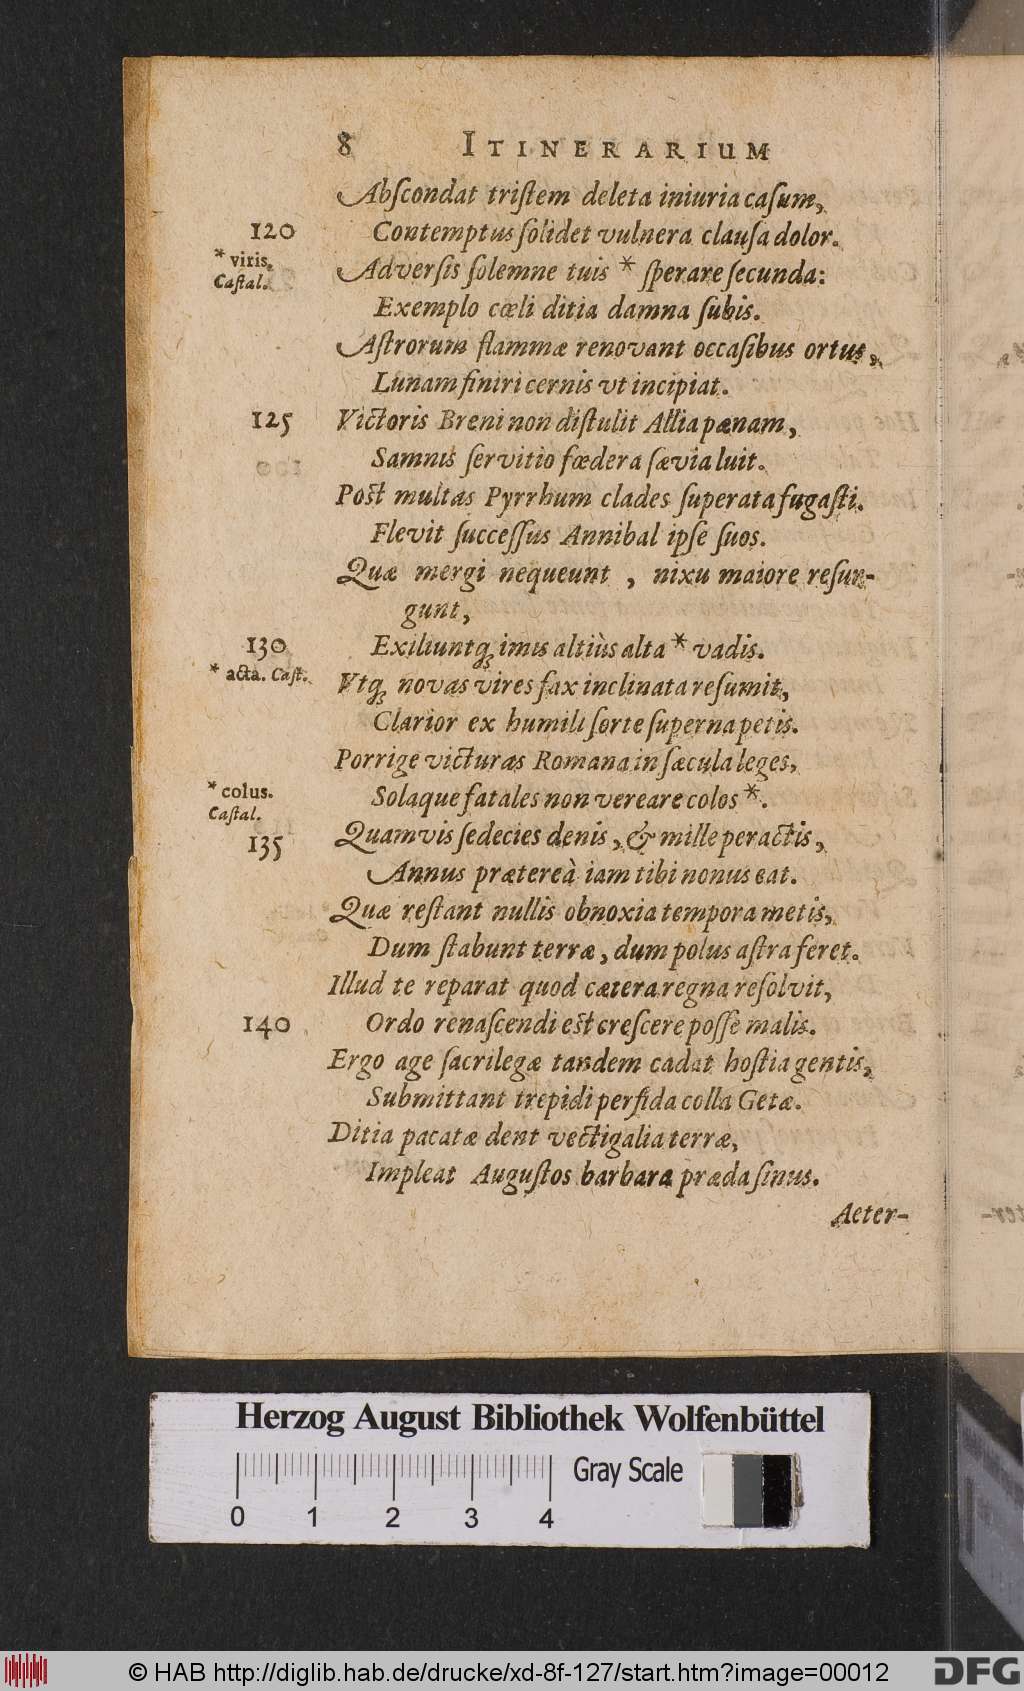 8 ITINERARIUM
Abſcondat triſtem deleta iniuria caſum,
120 Contemptus ſolidet vulnera clauſa dolor.
* viris. Adverſis ſolemne tuis * ſperare ſecunda:
Caſtal.
Exemplo cœli ditia damna ſubis.
Aſtrorum flammæ renovant occaſibus ortus,
Lunam finiri cernis vt incipiat.
125 Victoris Breni non diſtulit Allia pœnam,
Samnis ſervitio fœdera ſævia luit.
Poſt multas Pyrrhum clades ſuperata fugaſti.
Flevit ſucceſſus Annibal ipſe ſuos.
Quæ mergi nequeunt , nixu maiore reſur-
gunt,
130 Exiliuntq; imis altiùs alta * vadis.
* acta. Caſt. Vtq; novas vires fax inclinata reſumit,
Clarior ex humili ſorte ſuperna petis.
Porrige victuras Romana in ſæcula leges,
* colus. Solaque fatales non vereare colos *.
Caſtal.
135 Quamvis ſedecies denis, & mille peractis,
Annus prætereà iam tibi nonus eat.
Quæ reſtant nullis obnoxia tempora metis,
Dum ſtabunt terræ, dum polus aſtra feret.
Illud te reparat quod cætera regna reſolvit,
140 Ordo renaſcendi eſt creſcere poſſe malis.
Ergo age ſacrilegæ tandem cadat hoſtia gentis,
Submittant trepidi perfida colla Getæ.
Ditia pacatæ dent vectigalia terræ,
Impleat Auguſtos barbara præda ſinus.
Aeter-
Herzog August Bibliothek Wolfenbüttel
0 1 2 3 4 Gray Scale
© HAB http://diglib.hab.de/drucke/xd-8f-127/start.htm?image=00012
DFG